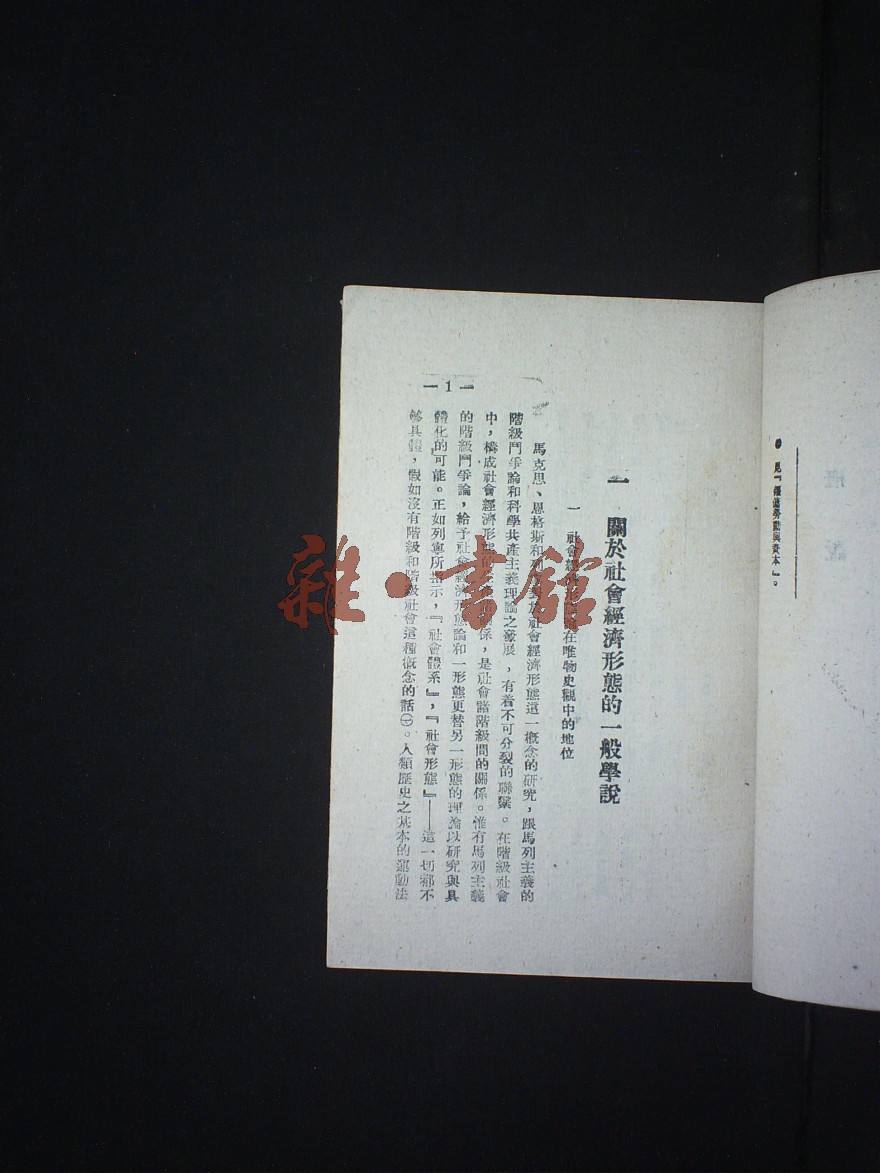 ● 見『僱傭勞動與資本』。
一 關於社會經濟形態的一般學說
一 社會經濟在唯物史觀中的地位
馬克思、恩格斯和列對於社會經濟形態這一概念的研究，跟馬列主義的
階級鬥爭論和科學共產主義理論之發展，有着不可分裂的聯繫。在階級社會
中，構成社會經濟形態的係，是社會諸階級間的關係。惟有馬列主義
的階級鬥爭論，給予社會經濟形態論和一形態更替另一形態的理論以研究與具
體化的可能。正如列寧所指示，『社會體系』，『社會形態』——這一切都不
够具體，假如沒有階級和階級社會這種概念的話㊀。人類歷史之基本的運動法
— 1 —
雜·書館